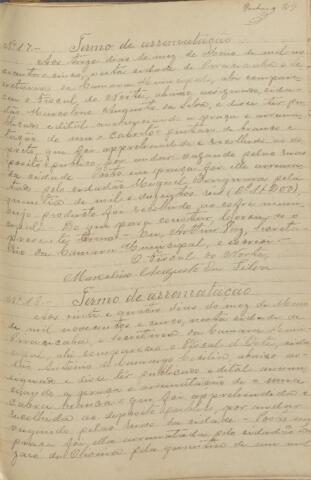 Nº 17.- Termo de arrematação
Aos treze dias do mez de Maio de mil no
vecentos e cinco, nesta cidade de Piracicaba e Se
cretaria da Camara Municipal, ahi compare
ceu o Fiscal do Norte, abaixo assignado, cida
dão Marcolino Augusto da Silva, e disse ter pu
blicado edital annunciando a praça e arrema
tação de um cabrito pintado de branco e
preto que foi apprehendido e recolhido ao de
posito publico, por andar vagando pelas ruas
da cidade. Posto em praça foi elle arrema
tado pelo cidadão Miguel pela
quantia de mil e duzentos reis (Rs. 1$200),
cujo producto foi recolhido ao cofre muni
cipal. Do que para constar, lavrou-se o
presente termo. Eu, Arthur Vaz, Secreta
rio da Camara Municipal, o escrevi.
O Fiscal do Norte,
Marcolino Augusto da Silva
Nº 18.- Termo de arrematação
Aos vinte e quatro dias do mez de Maio
de mil novecentos e cinco, nesta cidade de
Piracicaba, e Secretaria da Camara Muni
cipal, ahi compareceu o Fiscal do Oeste, cida
dão de Camargo abaixo as
signado e disse ter publicado edital annun
ciando a praça e arrematação de uma
cabra branca que foi apprehendida e
recolhida ao deposito publico, por andar
vagando pelas ruas da cidade. Posta em
praça foi ella arrematada pelo cidadão
de Oliveira pela quantia de um mil